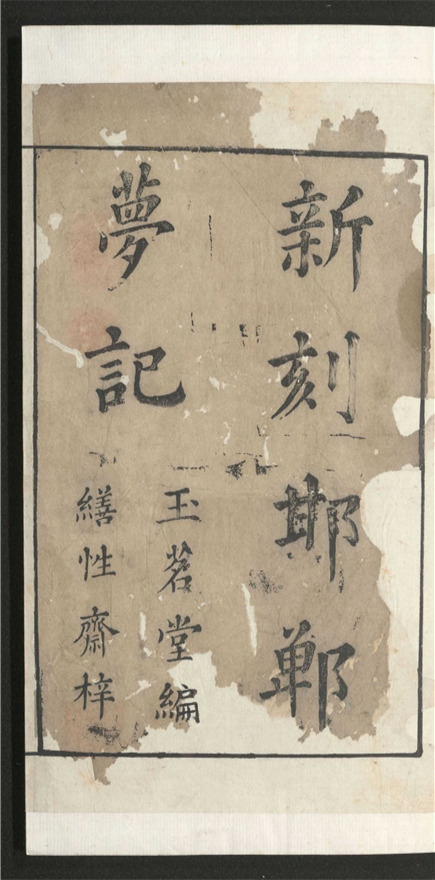 新刻邯鄲
夢記
玉茗堂編
繕性齋梓